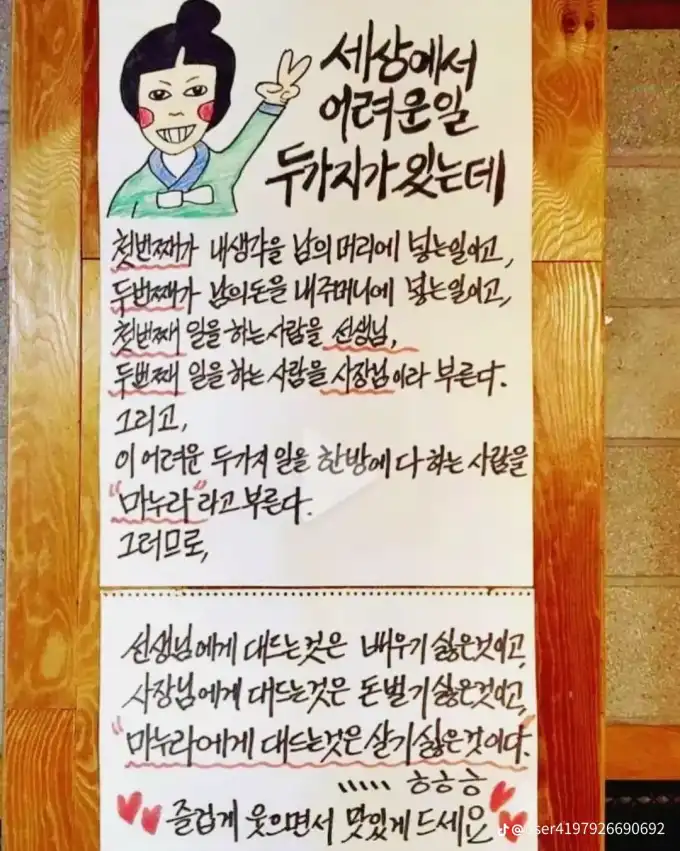 세상에서
어려운일
두가지가 있는데
첫번째가 내생각을 남의 머리에 넣는일이고,
두번째가 남의돈을 내주머니에 넣는일이고,
첫번째 일을 하는사람을 선생님,
두번째 일을 하는 사람을 사장님이라 부른다.
그리고,
이 어려운 두가지 일을 한방에 다 하는 사람을
"마누라"라고 부른다.
그러므로,
선생님에게 대드는것은 배우기 싫은것이고,
사장님에게 대드는것은 돈벌기 싫은것이고,
"마누라에게 대드는것은 살기 싫은것이다."
..... ㅎㅎㅎ
즐겁게 웃으면서 맛있게 드세요
@user4197926690692